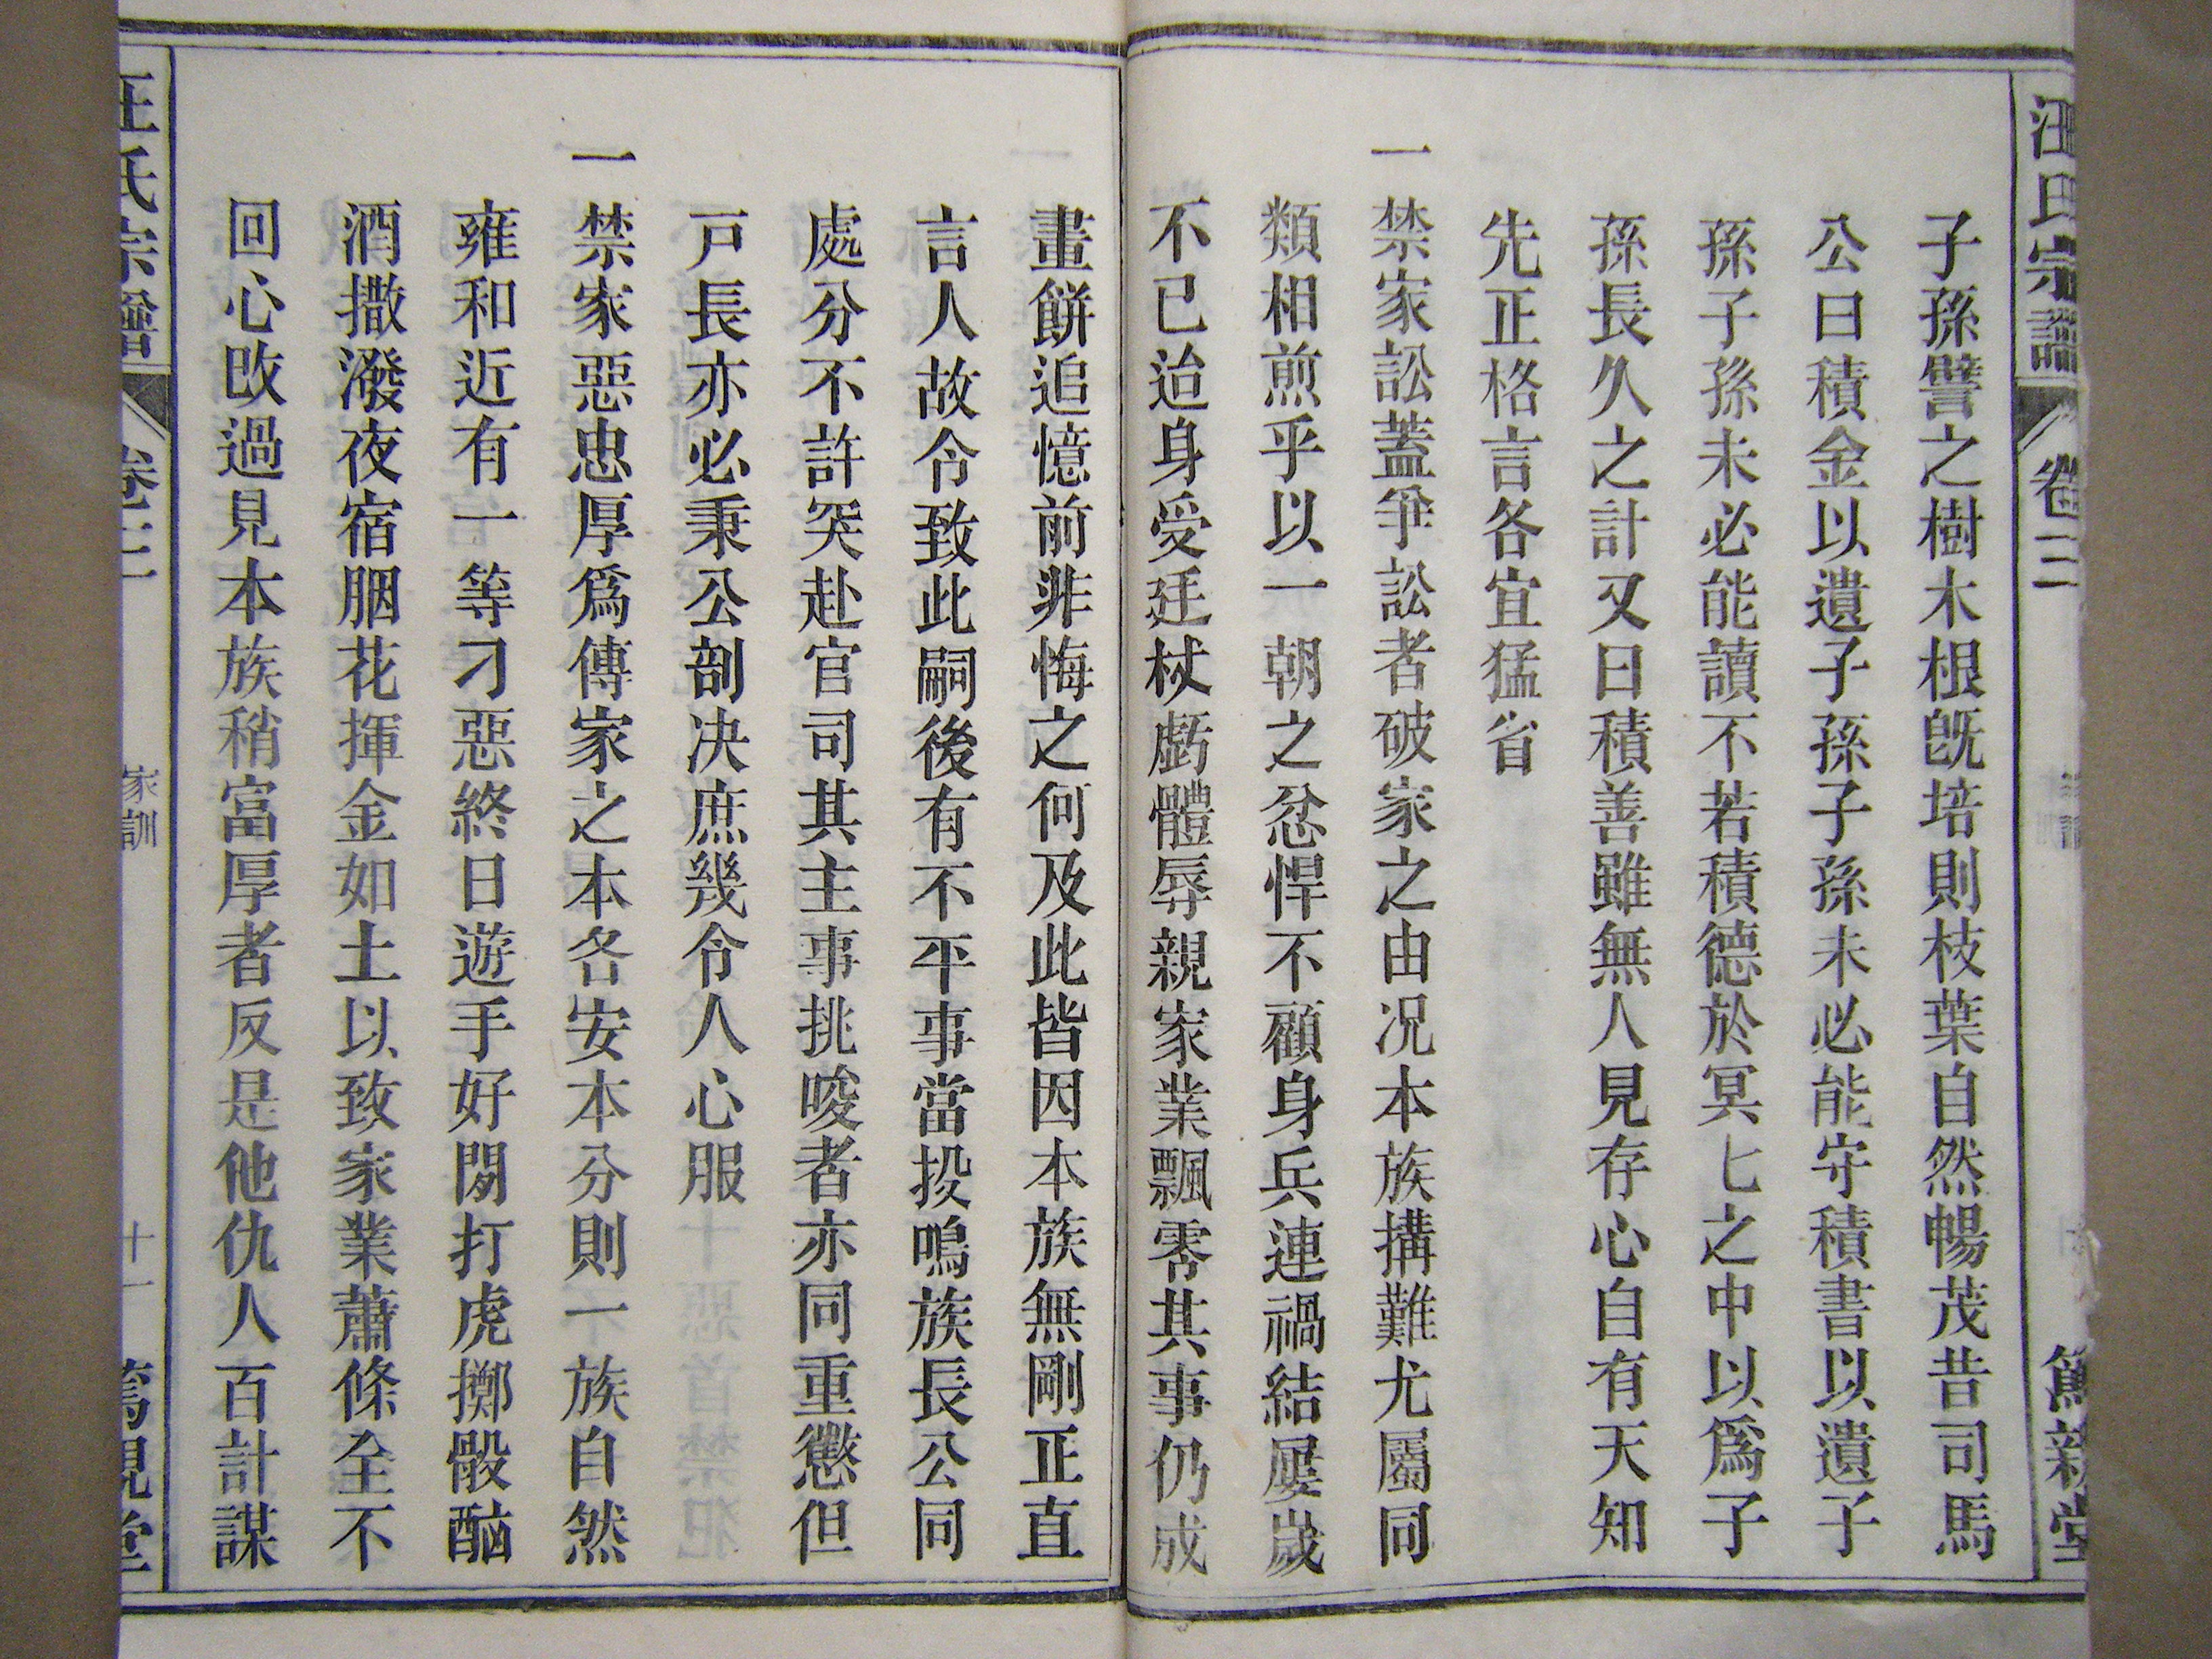 汪氏宗譜 卷三 篤親堂
子孫譬之樹木根旣培則枝葉自然暢茂昔司馬
公曰積金以遺子孫子孫未必能守積書以遺子
孫子孫未必能讀不若積德於冥匕之中以爲子
孫長久之計又曰積善雖無人見存心自有天知
先正格言各宜猛省
一禁家訟蓋爭訟者破家之由况本族搆難尤屬同
類相煎乎以一朝之忿悍不顧身兵連禍結屢歲
不已迨身受廷杖虧體辱親家業飄零其事仍成
畫餅追憶前非悔之何及此皆因本族無剛正直
言人故令致此嗣後有不平事當投鳴族長公同
處分不許突赴官司其主事挑唆者亦同重懲但
戸長亦必秉公剖决庶幾令人心服
一禁家惡忠厚爲傳家之本各安本分則一族自然
雍和近有一等刁惡終日遊手好閒打虎擲骰酗
酒撒潑夜宿胭花揮金如土以致家業蕭條全不
回心改過見本族稍富厚者反是他仇人百計謀
汪氏宗譜 卷三 家訓 十一 篤親堂